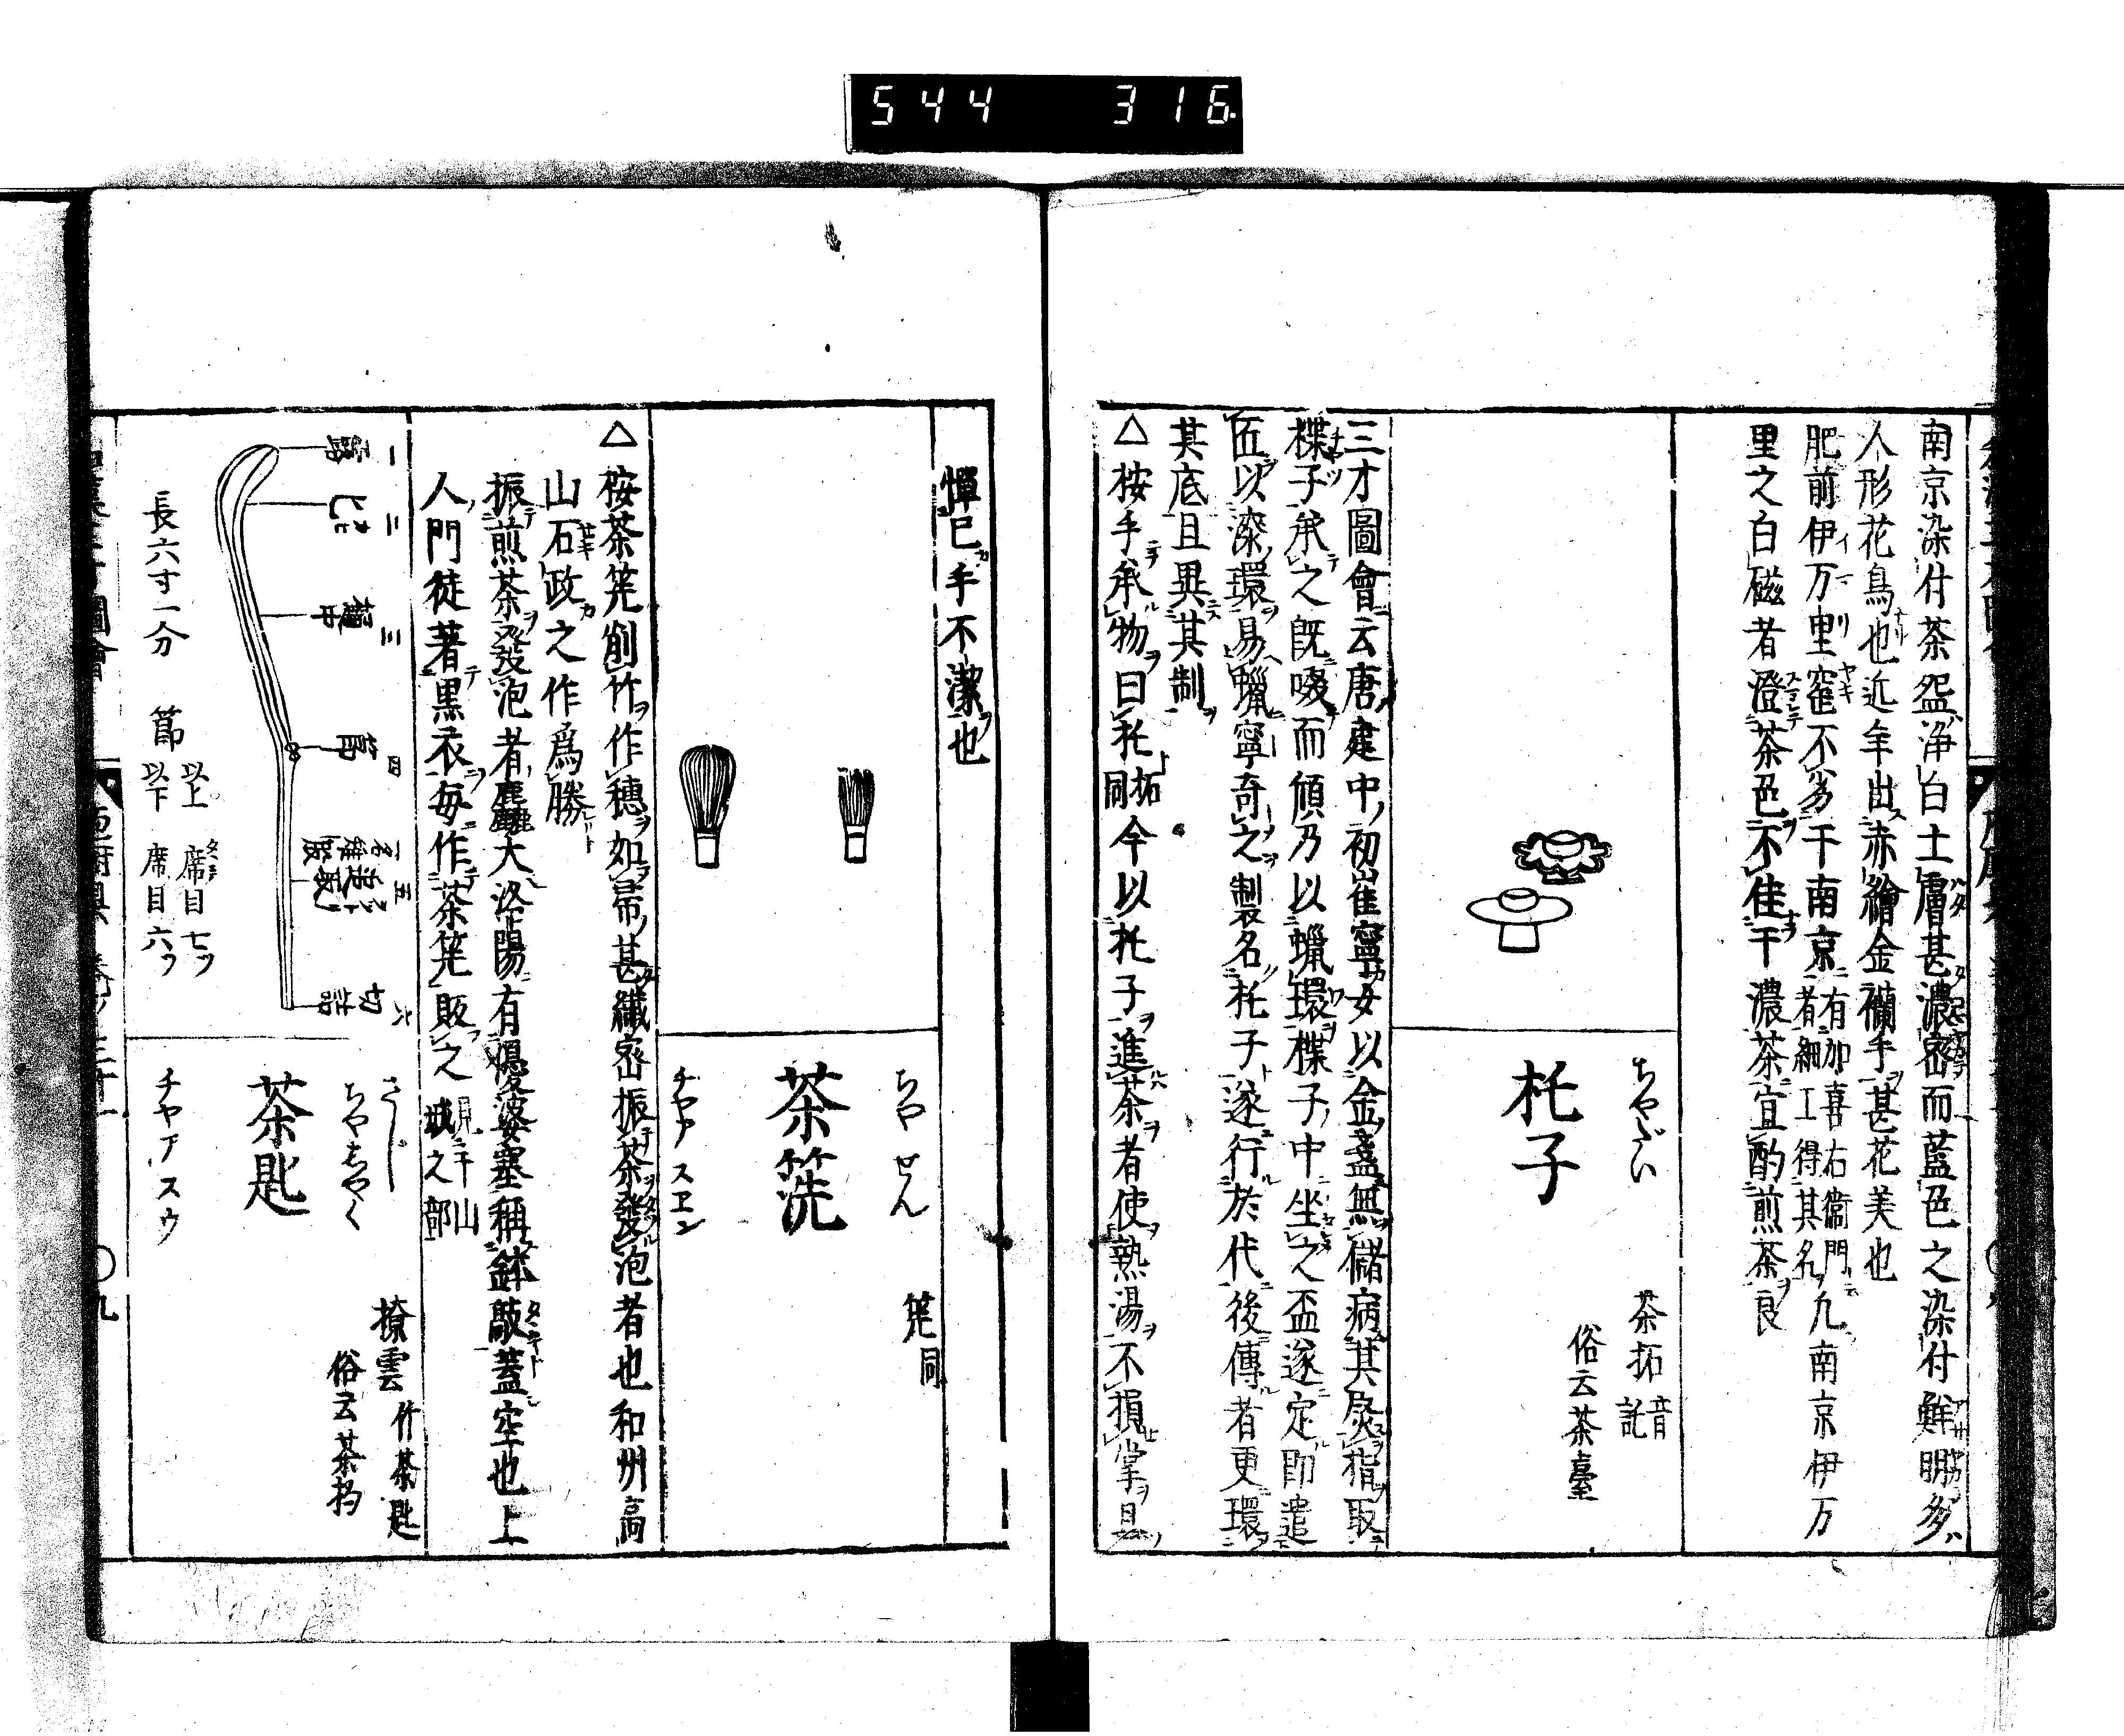 544 316
南京染付茶盌浄白土膚甚濃密而藍色之染付鮮明多
人形花鳥也近年出赤繪金襴手甚花美也
肥前伊万里窑不劣于南京有加喜右衞門
者細工得其名凡南京伊万
里之白磁者澄茶色不佳于濃茶宜酌煎茶良
ちやだい
托子
茶拓 音託
俗云茶臺
三才圖會云唐建中初崔寧女以金盞無儲病其熨指取
楪子承之既啜而傾乃以蠟環楪子中坐之盃遂定即遣
匠以漆環易蠟寧奇之製名托子遂行於代後傳者更環
其底且異其制
△按手承物曰托拓同今以托子進茶者使熱湯不損掌且
憚已手不潔也
ちやせん
茶筅
筅同
チヤアスヱン
△按茶筅削竹作穗如帚甚纖密振茶發泡者也和州高
山石政之作爲勝
振煎茶發泡者麤大洛陽有優婆塞稱鉢敲蓋空也上
人門徒著黒衣毎作茶筅販之見于山城之部
さじ
ちやしやく
茶匙
チヤアスウ
撩雲 竹茶匙
俗云茶杓
一 露
二 匕
三 樋中
四 節
五
六 切詰
長六寸一分
節 以上 席目七ツ
以下 席目六ツ
庖厨具 卷ノ三十一 〇九